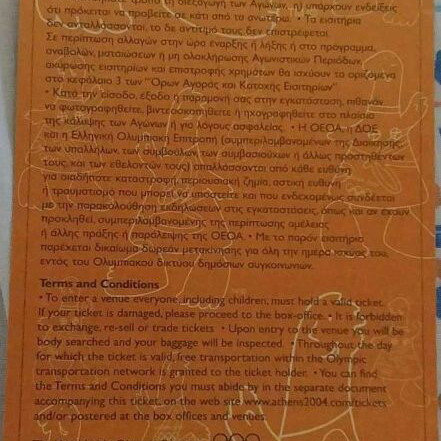 τρόπο τη διεξαγωγή των Αγώνων, ή) υπάρχουν ενδείξεις
ότι πρόκειται να προβείτε σε κάτι από τα ανωτέρω. • Τα εισιτήρια
δεν ανταλλάσσονται, το δε αντίτιμό τους δεν επιστρέφεται.
Σε περίπτωση αλλαγών στην ώρα έναρξης ή λήξης ή στο πρόγραμμα,
αναβολών, ματαιώσεων ή μη ολοκλήρωσης Αγωνιστικών Περιόδων,
ακύρωσης εισιτηρίων και επιστροφής χρημάτων θα ισχύουν τα οριζόμενα
στο κεφάλαιο 3 των "Όρων Αγοράς και Κατοχής Εισιτηρίων"
• Κατά την είσοδο, έξοδο ή παραμονή σας στην εγκατάσταση, πιθανόν
να φωτογραφηθείτε, βιντεοσκοπηθείτε ή ηχογραφηθείτε στο πλαίσιο
της κάλυψης των Αγώνων ή για λόγους ασφαλείας. • Η ΟΕΟΑ, η ΔΟΕ
και η Ελληνική Ολυμπιακή Επιτροπή (συμπεριλαμβανομένων της Διοίκησης,
των υπαλλήλων, των συμβούλων, των συμβασιούχων ή άλλως προστηθέντων
τους, και των εθελοντών τους) απαλλάσσονται από κάθε ευθύνη
για οιαδήποτε καταστροφή, περιουσιακή ζημία, αστική ευθύνη
ή τραυματισμό που μπορεί να υποστείτε και που ενδεχομένως συνδέεται
με την παρακολούθηση εκδηλώσεων στις εγκαταστάσεις, όπως και αν έχουν
προκληθεί, συμπεριλαμβανομένης της περίπτωσης αμέλειας
ή άλλης πράξης ή παράλειψης της ΟΕΟΑ. • Με το παρόν εισιτήριο
παρέχεται δικαίωμα δωρεάν μετακίνησης για όλη την ημέρα ισχύος του,
εντός του Ολυμπιακού δικτύου δημόσιων συγκοινωνιών.
Terms and Conditions
• To enter a venue everyone, including children, must hold a valid ticket.
If your ticket is damaged, please proceed to the box-office. • It is forbidden
to exchange, re-sell or trade tickets • Upon entry to the venue you will be
body searched and your baggage will be inspected. • Throughout the day
for which the ticket is valid, free transportation within the Olympic
transportation network is granted to the ticket holder. • You can find
the Terms and Conditions you must abide by in the separate document
accompanying this ticket, on the web site www.athens2004.com/tickets
and/or postered at the box offices and venues.